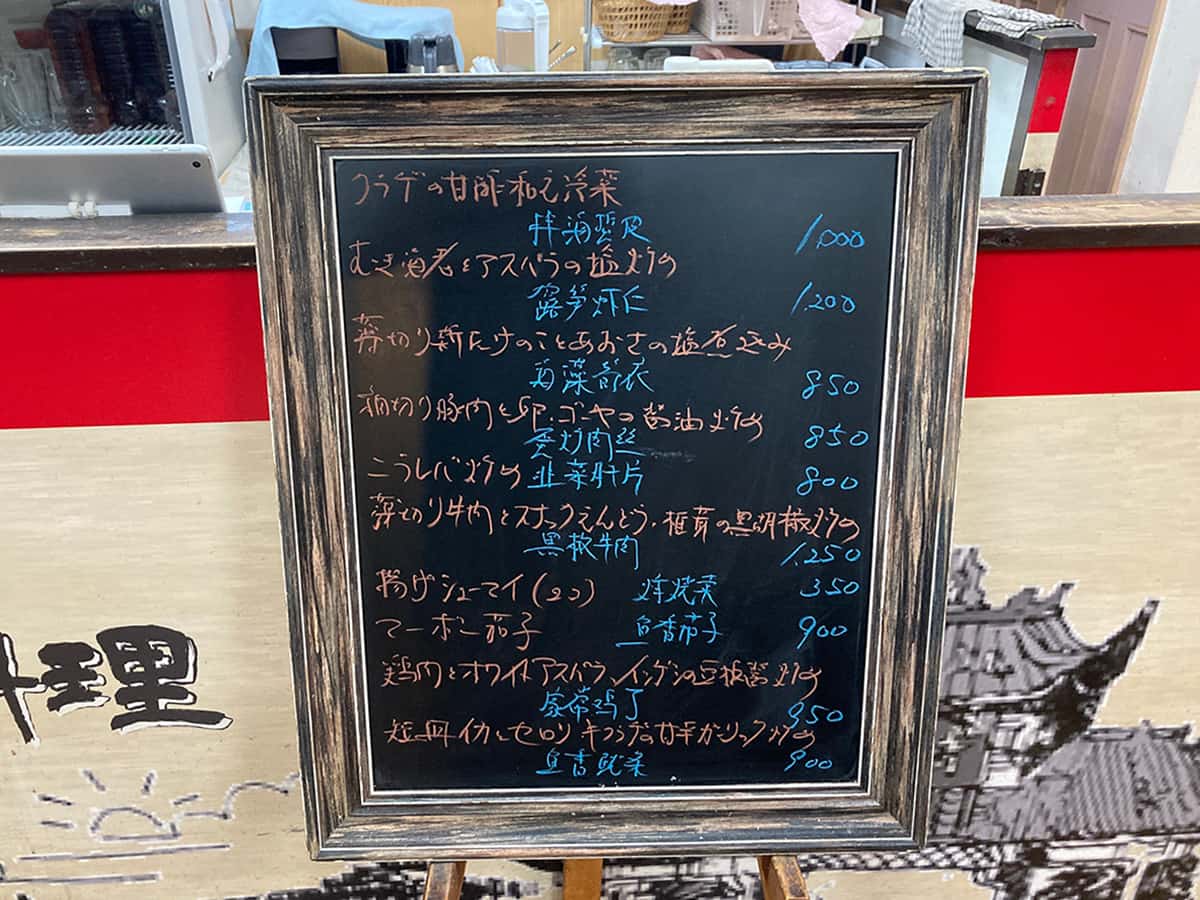 クラゲの甘酢和え冷菜
拌海蜇皮 1,000
むき海老とアスパラの塩炒め
露笋虾仁 1,200
薄切り新たけのことあおさの塩煮込み
海藻笋衣 850
細切り豚肉と卵、ゴーヤの醤油炒め
蛋炒肉丝 850
ニラレバ炒め 韭菜肝片 800
薄切り牛肉とスナックえんどう・椎茸の黒胡椒炒め
黒椒牛肉 1,250
揚げシューマイ(2コ) 炸焼菜 350
マーボー茄子 魚香茄子 900
鶏肉とホワイトアスパラ、インゲンの豆板醤炒め
家常鸡丁 950
短冊イカとセロリ キクラゲの甘辛ガーリック炒め
魚香鱿柔 900
理